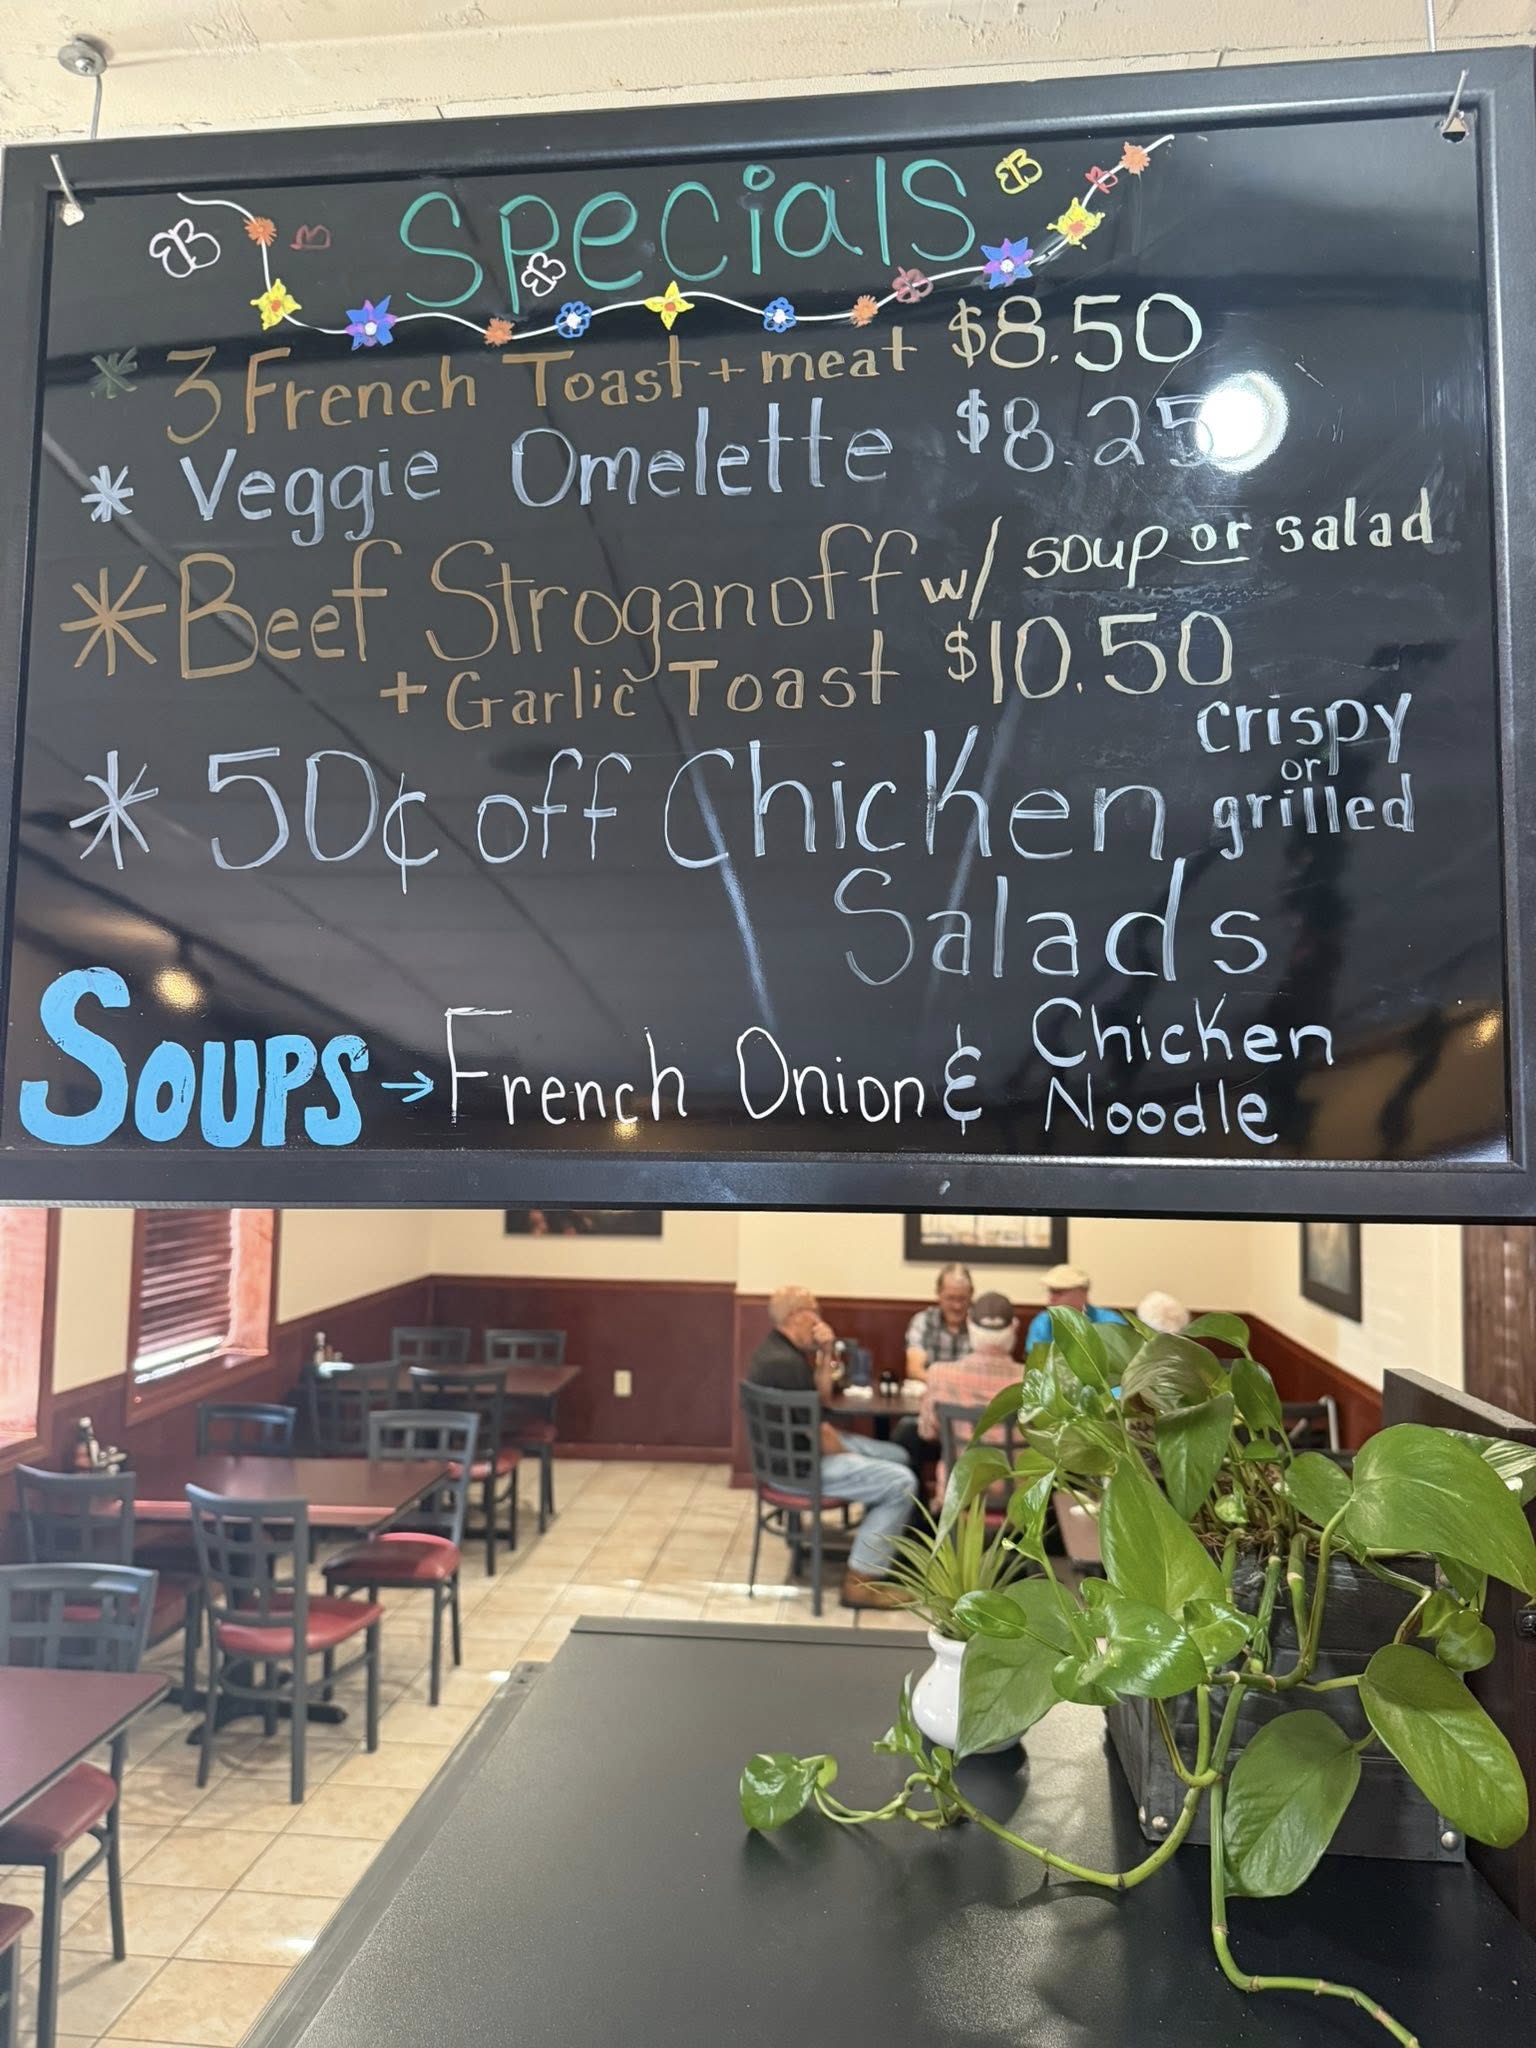 Specials
* 3 French Toast + meat $8.50
* Veggie Omelette $8.25
* Beef Stroganoff w/ soup or salad
+ Garlic Toast $10.50
* 50¢ off Chicken crispy or grilled
Salads
SOUPS → French Onion & Chicken Noodle